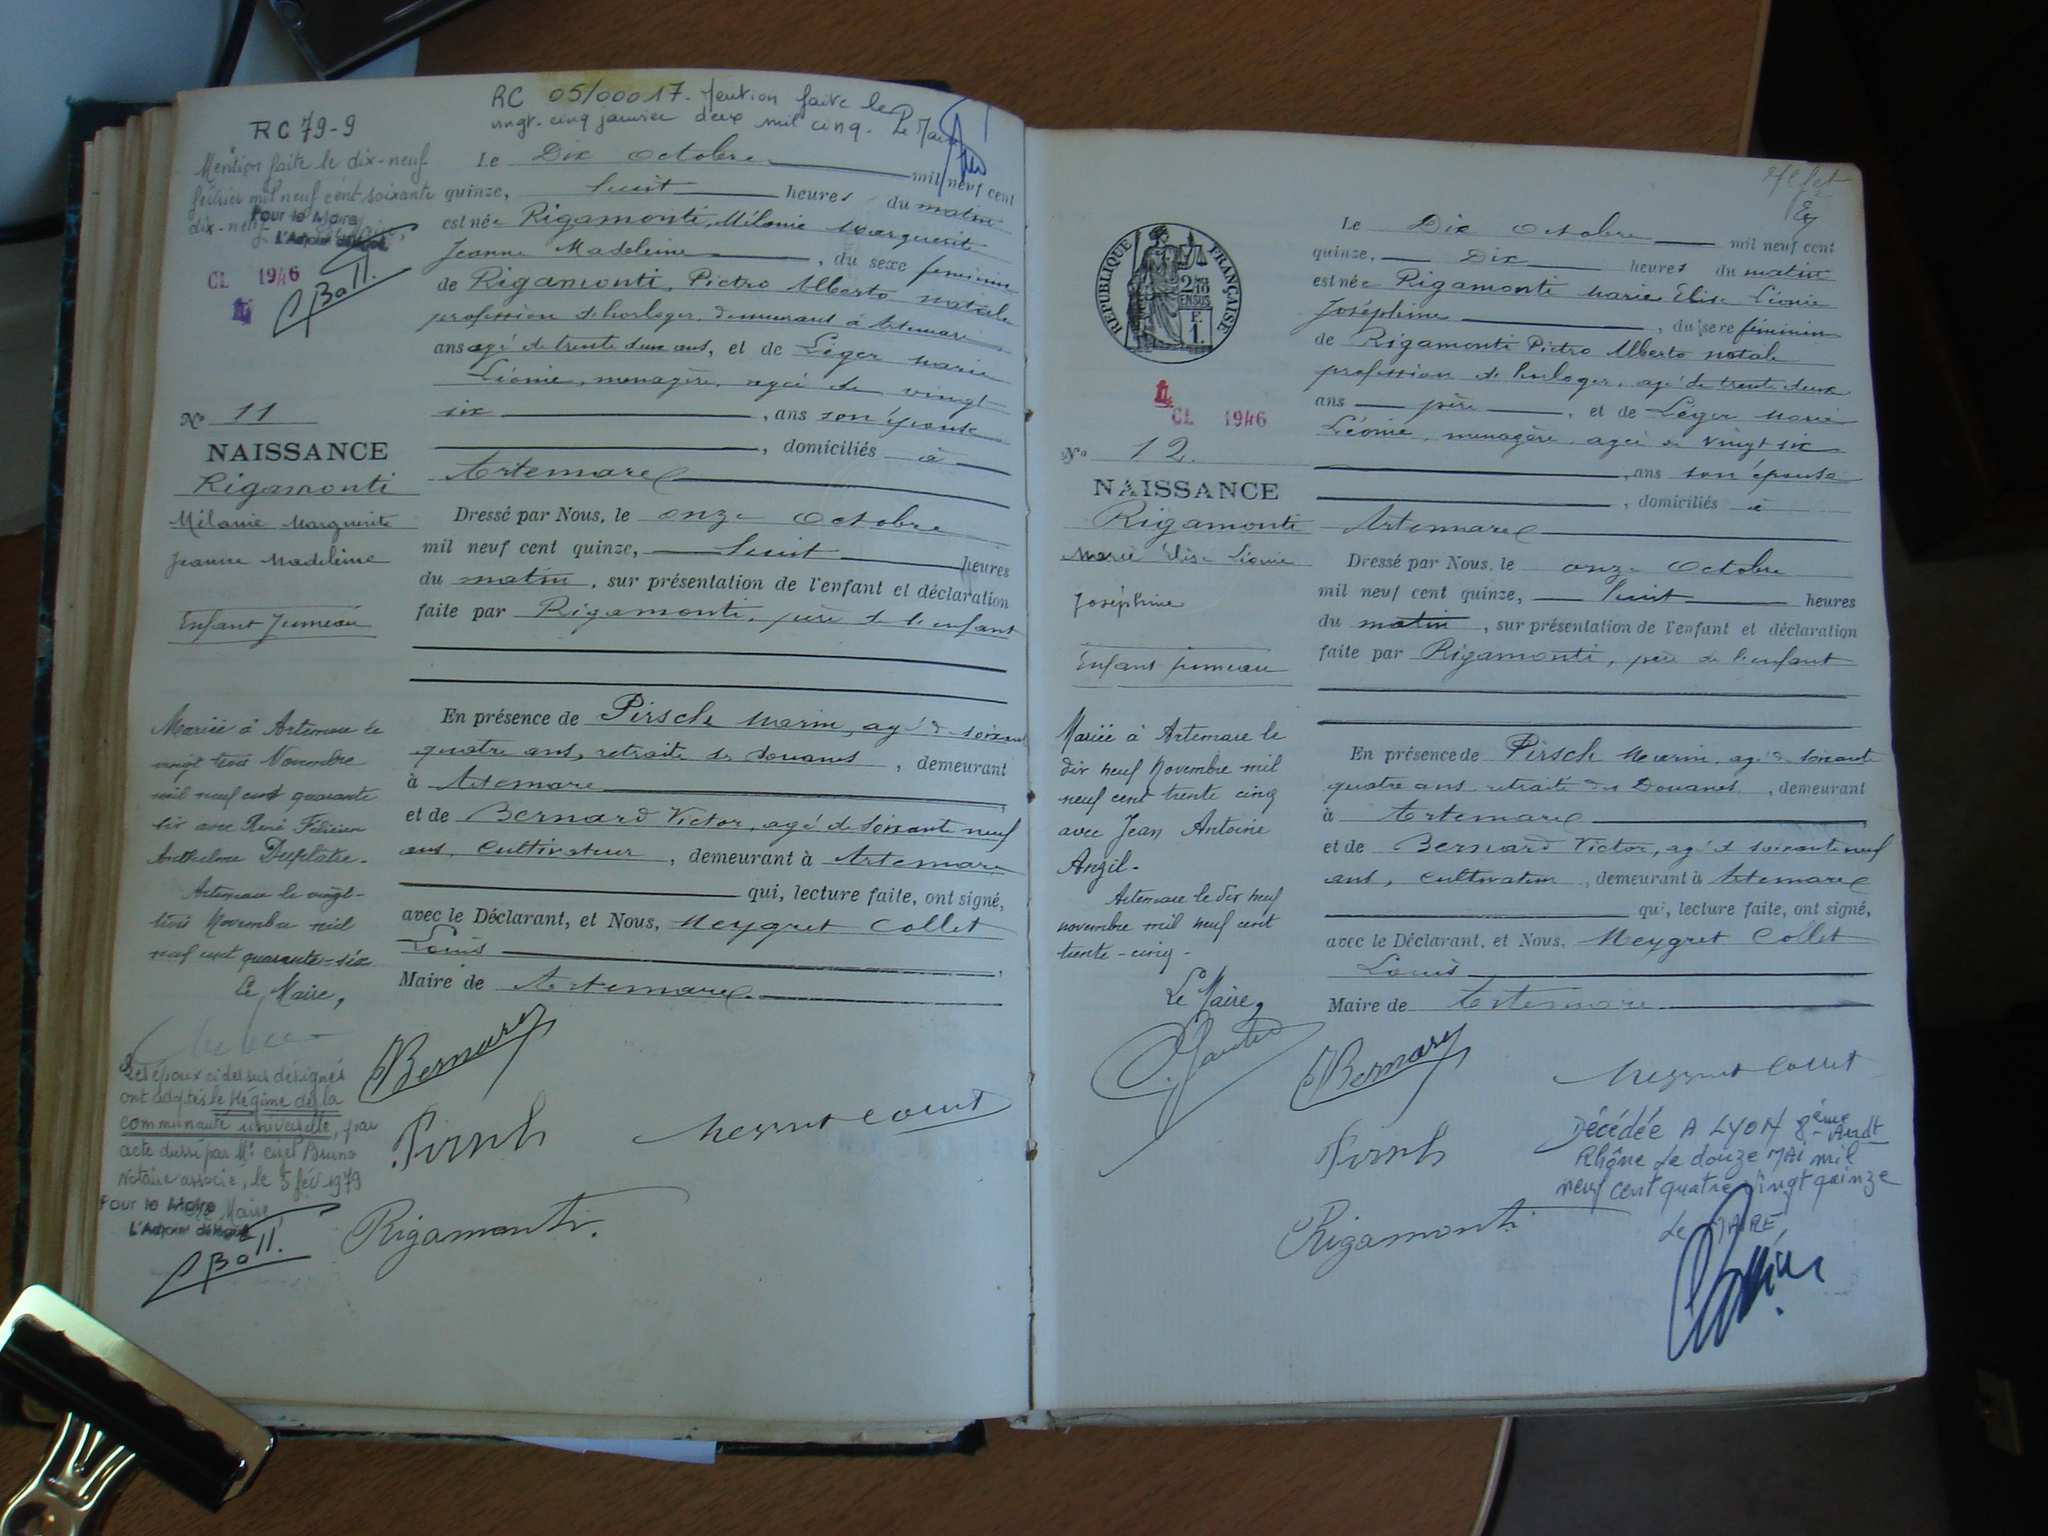 RC 79-9
Mention faite le dix-neuf
février mil neuf cent soixante
dix-neuf
Pour le Maire
L'Adjoint délégué
CL 1946
RC 05/00017. Mention faite le
vingt-cinq janvier deux mil cinq. Le Maire
Le Dix Octobre mil neuf cent
quinze, huit heures du matin
est née Rigamonti, Mélanie Marguerite
Jeanne Madeleine, du sexe féminin
de Rigamonti, Pietro Alberto Natale
profession d'horloger, demeurant à Artemare
ans agé de trente deux ans, et de Léger Marie
Léonie, menagère, agée de vingt
six, ans son épouse
, domiciliés à
Artemare
Dressé par Nous, le onze Octobre
mil neuf cent quinze, huit heures
du matin, sur présentation de l'enfant et déclaration
faite par Rigamonti, père de l'enfant
En présence de Pirsch Marin, agé de soixante
quatre ans, retraité des Douanes, demeurant
à Artemare
et de Bernard Victor, agé de soixante neuf
ans, cultivateur, demeurant à Artemare
qui, lecture faite, ont signé,
avec le Déclarant, et Nous, Meygret Collet
Louis
Maire de Artemare
Bernard
Pirsch Meygret Collet
Rigamonti
N° 11
NAISSANCE
Rigamonti
Mélanie Marguerite
Jeanne Madeleine
Enfant Jumeau
Mariée à Artemare le
vingt trois Novembre
mil neuf cent quarante
six avec René Félicien
Anthelme Duplatre.
Artemare le vingt-
trois Novembre mil
neuf cent quarante-six
Le Maire,
Les époux ci dessus désignés
ont adopté le Régime de la
communauté universelle, par
acte dressé par Me Bruno
Notaire associé, le 5 fév 1979
Pour le Maire
L'Adjoint délégué
RÉPUBLIQUE FRANÇAISE
CL 1946
N° 12.
NAISSANCE
Rigamonti
Marie Elise Léonie
Joséphine
Enfant jumeau
Mariée à Artemare le
dix neuf Novembre mil
neuf cent trente cinq
avec Jean Antoine
Angil.
Artemare le dix neuf
novembre mil neuf cent
trente-cinq.
Le Maire,
Le Dix Octobre mil neuf cent
quinze, Dix heures du matin
est née Rigamonti Marie Elise Léonie
Joséphine, du sexe féminin
de Rigamonti Pietro Alberto Natale
profession d'horloger, agé de trente deux
ans père, et de Léger Marie
Léonie, menagère, agée de vingt six
, ans son épouse
, domiciliés à
Artemare
Dressé par Nous, le onze Octobre
mil neuf cent quinze, huit heures
du matin, sur présentation de l'enfant et déclaration
faite par Rigamonti, père de l'enfant
En présence de Pirsch Marin, agé de soixante
quatre ans retraité des Douanes, demeurant
à Artemare
et de Bernard Victor, agé de soixante neuf
ans, cultivateur, demeurant à Artemare
qui, lecture faite, ont signé,
avec le Déclarant, et Nous, Meygret Collet
Louis
Maire de Artemare
Bernard Meygret Collet
Pirsch
Rigamonti
Décédée A LYON 8ème Arrdt
Rhône le douze MAI mil
neuf cent quatre vingt quinze
Le MAIRE